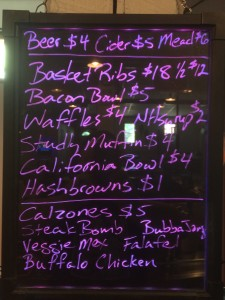 Beer $4 Cider $5 Mead $6
Basket Ribs $18 ½ $12
Bacon Bowl $5
Waffles $4 $2
Study Muffin $4
California Bowl $4
Hashbrowns $1
Calzones $5
Steak Bomb Bubba Jay
Veggie Mex Falafel
Buffalo Chicken